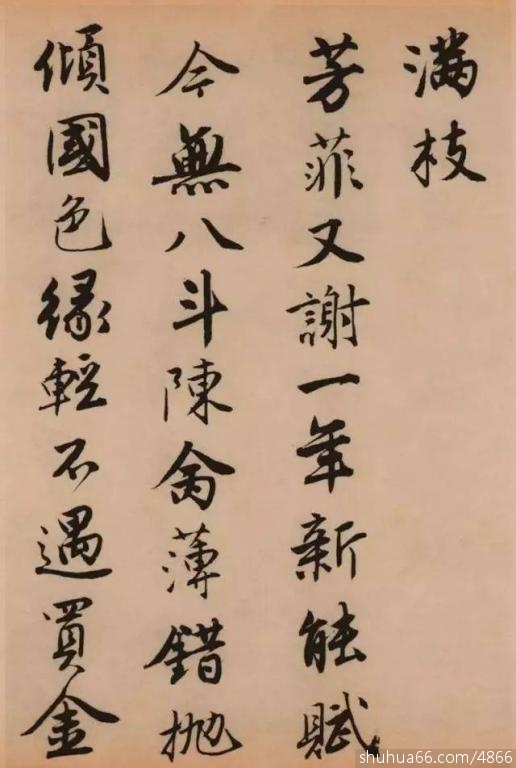 满枝
芳菲又謝一年新能賦
今無八斗陳禽薄錯抛
傾國色緣輕不遇買金
shuhua66.com/4866